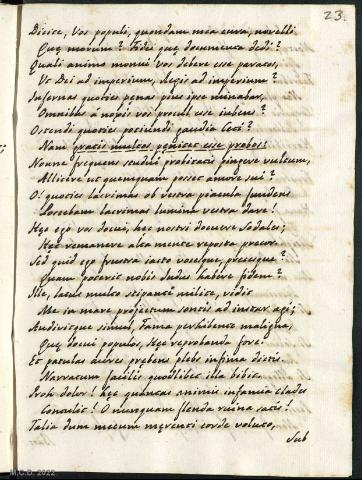 23.
Dicite, Vos populi, quondam mea cura, novelli
Quæ morum? Fidei quæ documenta dedi?
Quali animo monui vos debere esse paratos,
Ut Dei ad imperium, Regis ad imperium?
Infernas quoties penas pius ipse minabar,
Omnibus a nopis vos procul esse iubens?
Ostendi quoties potiundi gaudia Cœli?
Nam gratis multos penitet esse probos.
Nonne frequens studui probitatis pingere vultum,
Allicere ut quemquam posset amore sui?
O! quoties lacrimas ob vestra piacula fundens
Poscebam lacrimas lumina vestra dare!
Hæc ego vos docui, hæc nostri docuere Sodales;
Hæc remanere alta mente reposta precor.
Sed quid ego frustra iacto vosque, precesque?
Quam poteris nobis Indus habere fidem?
Ille, latus multo stipante milite, vidit
Me in mare projectum sontis ad instar agi;
Audivitque simul, Fama perhibente maligna,
Quæ docui populos, Hæc reprobanda fore:
Et patulas aures præbens plebs infima dictis
Narratum facili quodlibet illa bibit.
Proh dolor! hæc quantas animis infamia clades
Consulit! O nunquam flenda ruina satis!
Talia dum mecum mærenti corde voluto,
Sub
M.C.D. 2022